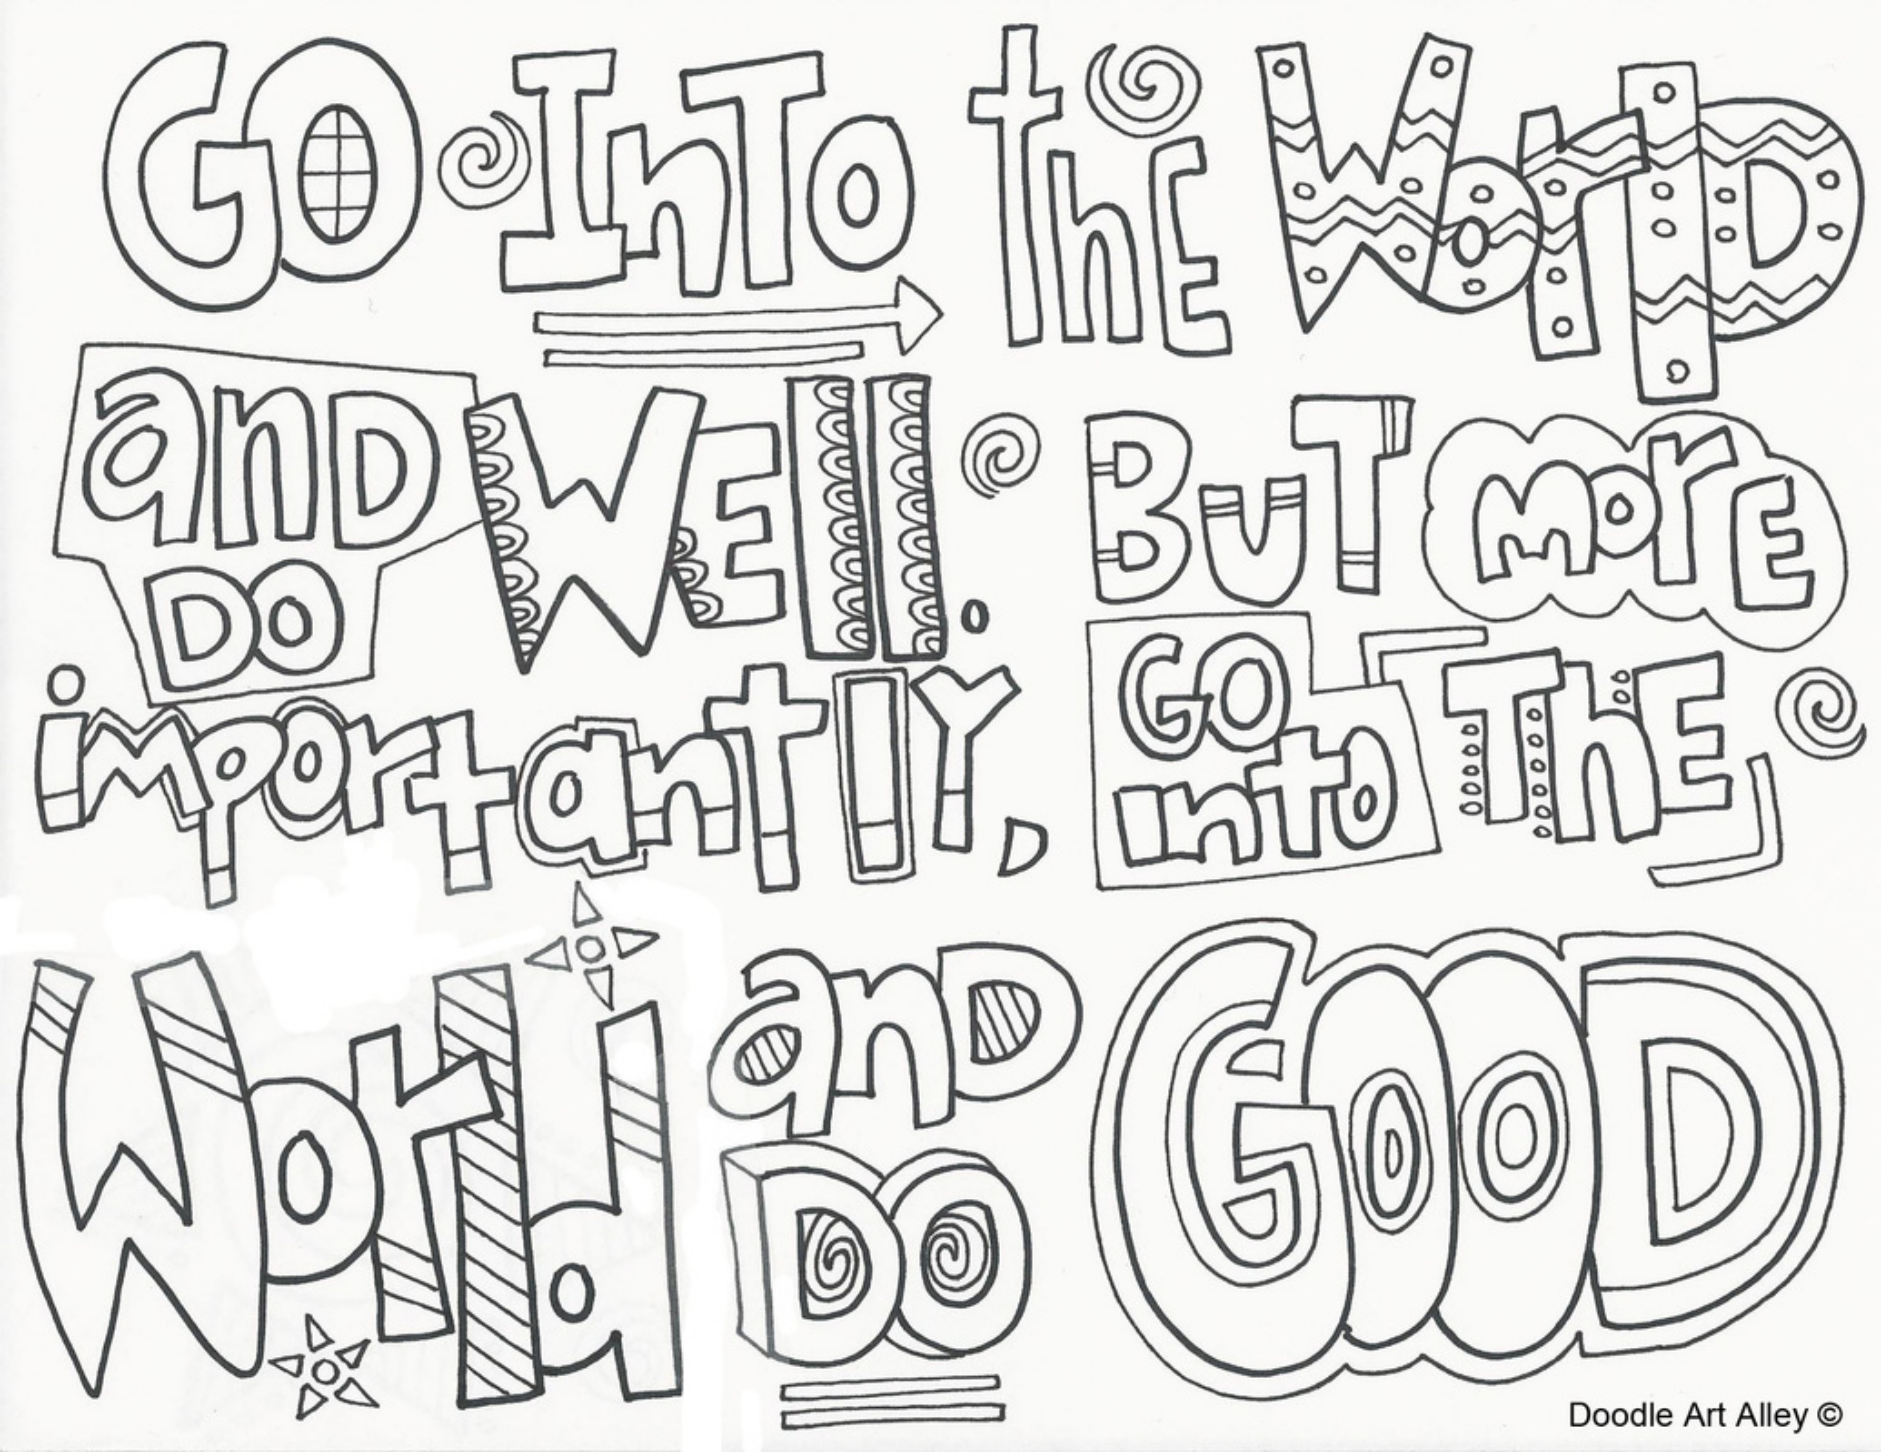 GO InTo thE WorlD
anD WEll. BUT morE
DO
importantlY, GO into ThE
World anD GOOD
DO
Doodle Art Alley ©